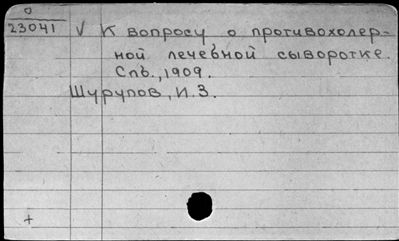 0
23041 V К вопросу о противохолер-
ной лечебной сыворотке.
Спб., 1909.
Шурупов, И.З.
+